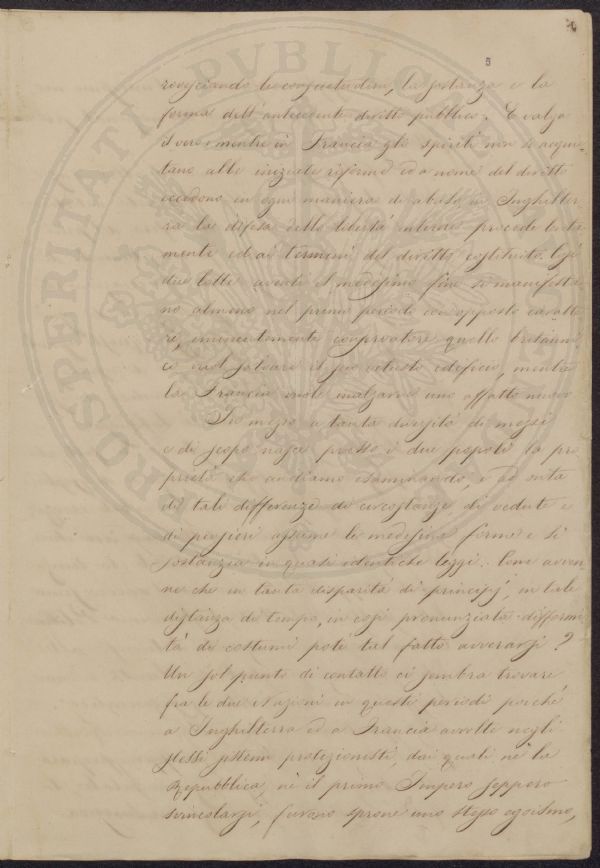 5
rovesciando le consuetudini, la sostanza e la
forma dell'antecedente diritto pubblico. E valga
il vero: mentre in Francia gli spiriti non si acque-
tano alle iniziate riforme ed a nome del diritto
eccedono in ogni maniera di abuso, in Inghilter
ra la difesa delle libertà interne procede lenta
mente ed ai termini del diritto costituito. Così
due lotte aventi il medesimo fine si manifesta
no almeno nel primo periodo con opposto caratte
re, eminentemente conservatore quello britanni
co vuol salvare il suo vetusto edificio, mentre
la Francia vuole innalzarne uno affatto nuovo
In mezzo a tanta diversità di mezzi
e di scopo nasce presso i due popoli la pro
prietà che andiamo esaminando, e ad onta
di tali differenze di circostanze di vedute e
di pensieri assume le medesime forme e si
sostanzia in quasi identiche leggi. Come avven
ne che in tanta disparità di principj, in tale
distanza di tempo, in così pronunziata difformi
tà di costumi potè tal fatto avverarsi?
Un sol punto di contatto ci sembra trovare
fra le due Nazioni in questi periodi perchè
a Inghilterra ed a Francia avvolte negli
stessi sistemi protezionisti, dai quali nè la
Repubblica, nè il primo Impero seppero
svincolarsi, furono sprone uno stesso egoismo,
PROSPERITATI PVBLICAE